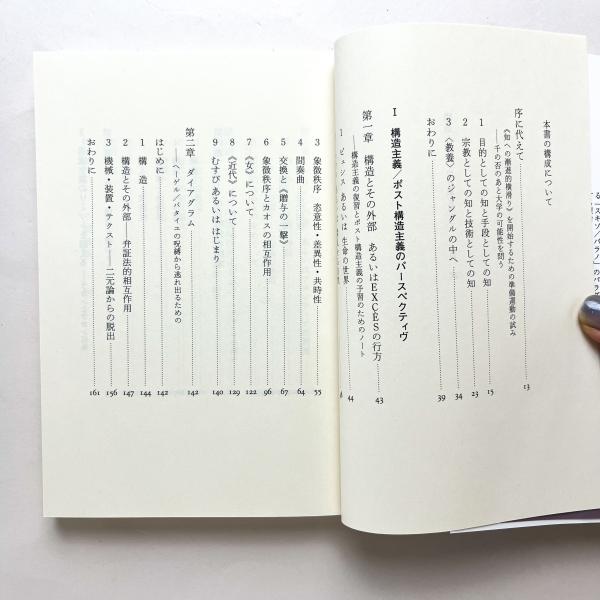 る「スキゾ/パラノ」のパラ
本書の構成について
序に代えて 13
《知への漸進的横滑り》を開始するための準備運動の試み
——千の否のあと大学の可能性を問う
1 目的としての知と手段としての知 15
2 宗教としての知と技術としての知 23
3 〈教養〉のジャングルの中へ 34
おわりに 39
I 構造主義/ポスト構造主義のパースペクティヴ
第一章 構造とその外部 あるいはEXCÈSの行方 43
——構造主義の復習とポスト構造主義の予習のためのノート 44
1 ピュシス あるいは 生命の世界
3 象徴秩序 恣意性・差異性・共時性 55
4 間奏曲 64
5 交換と《贈与の一撃》 67
6 象徴秩序とカオスの相互作用 96
7 《女》について 122
8 《近代》について 129
9 むすび あるいは はじまり 140
第二章 ダイアグラム 142
——ヘーゲル/バタイユの呪縛から逃れ出るための
はじめに 142
1 構造 144
2 構造とその外部——弁証法的相互作用 147
3 機械・装置・テクスト——二元論からの脱出 156
おわりに 161